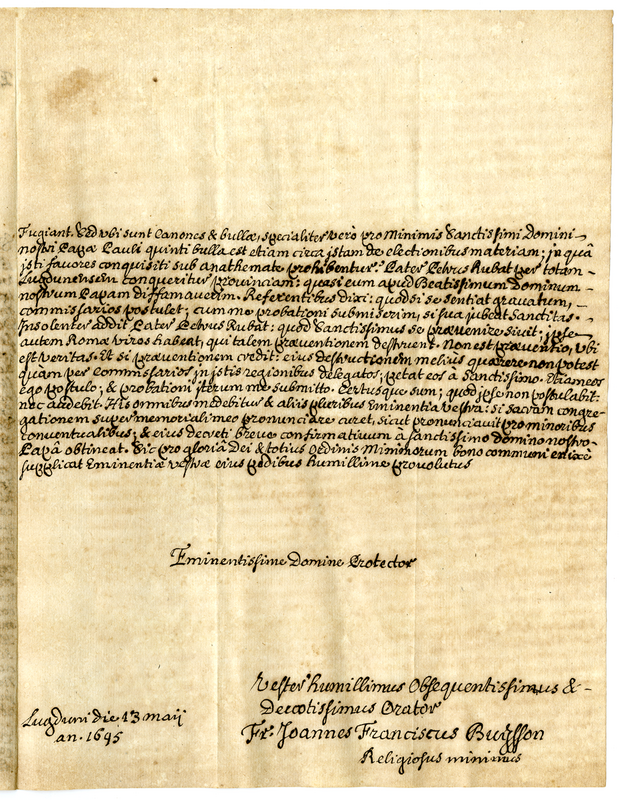 Fugiant. Sed ubi sunt Canones & bullæ, specialiter verò pro Minimis Sanctissimi Domini-
nostri Papæ Pauli quinti bulla est etiam circa jstam de electionibus materiam; jn quâ
jsti favores conquisiti sub anathemate prohibentur. Pater Petrus Rubat per totam-
Lugdunensem conqueritur provinciam: quasi eum apud Beatissimum Dominum-
nostrum Papam diffamaverim. Referentibus dixi: quod si se sentiat gravatum,-
commissarios postulet; cum me probationi submiserim, si sua jubeat Sanctitas.
Insolenter addit Pater Petrus Rubat: quod Sanctissimus se prævenire sivit. jpse
autem Romæ viros habeat, qui talem præventionem destruent. Non est præventio, ubi
est veritas. Et si præventionem credit: eius destructionem melius quærere non potest
quam per Commissarios jn jstis regionibus delegatos; petat eos à Sanctissimo. Etiam eos
ego postulo; & probationi jterum me submitto. Certusque sum; quod jpse non postulabit:
nec audebit. His omnibus medebitur & aliis pluribus Eminentia Vestra: si sacram congre-
gationem super memoriali meo pronunciare curet, sicut pronunciavit pro minoribus
conventualibus; & eius decreti breve confirmativum à sanctissimo domino nostro-
Papâ obtineat. Sic pro gloria Dei & totius Ordinis Minimorum bono communi enixè
supplicat Eminentiæ vestræ eius pedibus humillime provolutus
Eminentissime Domine Protector
Vester humillimus Obsequentissimus &-
Devotissimus Orator
Lugduni die 13 maij
an. 1695
Fr. Joannes Franciscus Buysson
Religiosus minimus